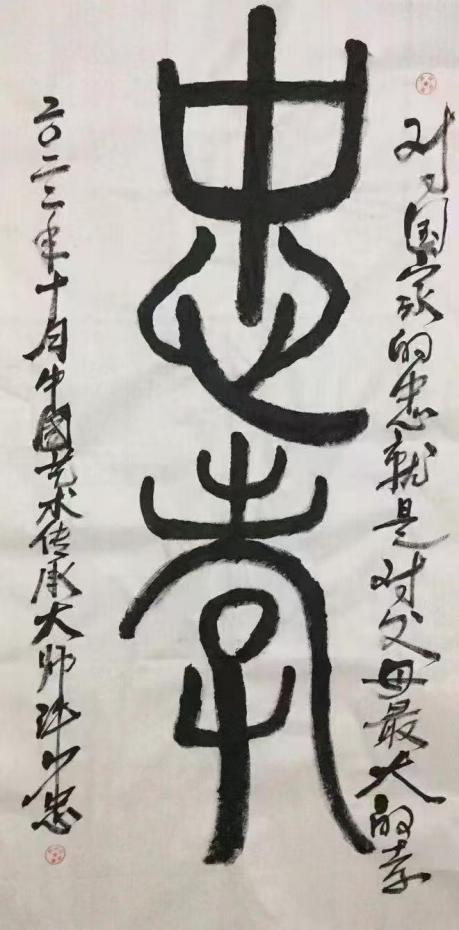 对国家的忠就是对父母最大的孝
忠孝
二〇二二年十月中国艺术传承大师忠